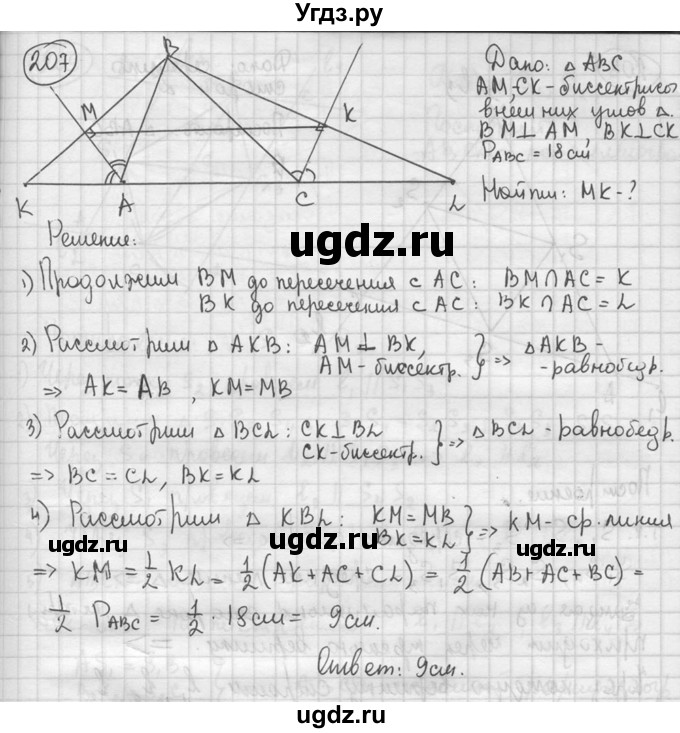 Угдз.ру
207
B
M
K
K
A
C
L
Дано: △ ABC
AM, CK - биссектрисы
внешних углов △.
BM⊥AM, BK⊥CK
P ABC = 18 см
Найти: MK - ?
Решение:
ugdz.ru
1) Продолжим BM до пересечения с AC: BM∩AC = K
BK до пересечения с AC: BK∩AC = L
2) Рассмотрим △ AKB: AM⊥BK, AM - биссектр. } => △AKB - равнобедр.
=> AK = AB, KM = MB
3) Рассмотрим △ BCL: CK⊥BL CK - биссектр. } => △ BCL - равнобедр.
=> BC = CL, BK = KL
4) Рассмотрим △ KBL: KM = MB BK = KL } => KM - ср. линия
ugdz.ru
ugdz.ru
=> KM = 1/2 KL = 1/2 (AK + AC + CL) = 1/2 (AB + AC + BC) =
1/2 P ABC = 1/2 · 18 см = 9 см.
Ответ: 9 см.
ugdz.ru
ugdz.ru